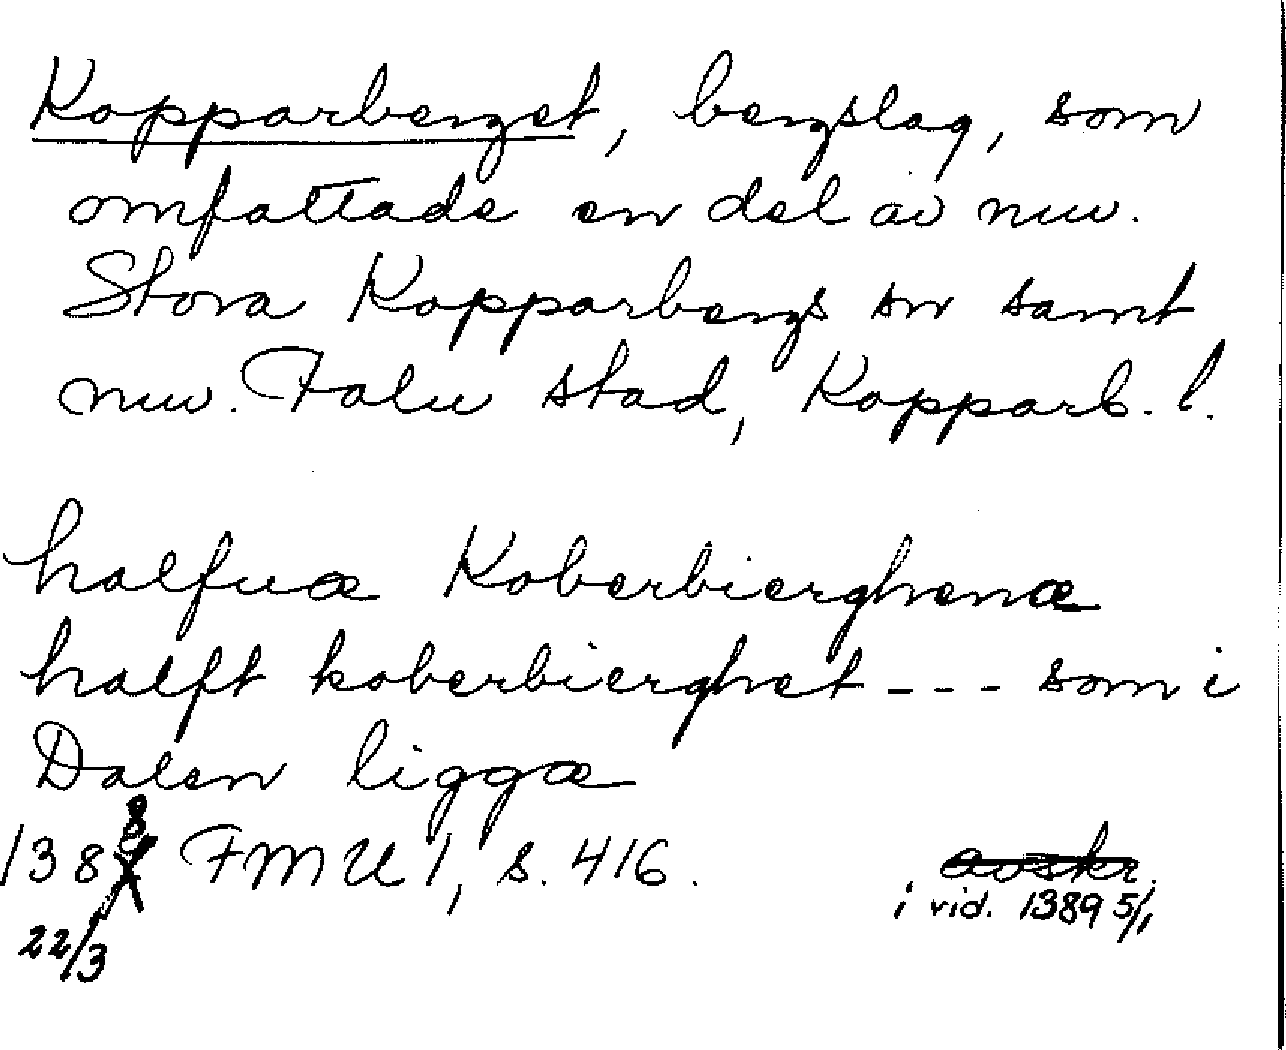 Kopparberget, bergslag, som
omfattade en del av nuv.
Stora Kopparbergs sn samt
nuv. Falu stad, Kopparb. l.
halfuæ Koberbierghenæ
halft koberbierghet --- som i
Dalen liggæ
1388 FMU 1, s. 416. avskr.
22/3 i vid. 1389 5/1